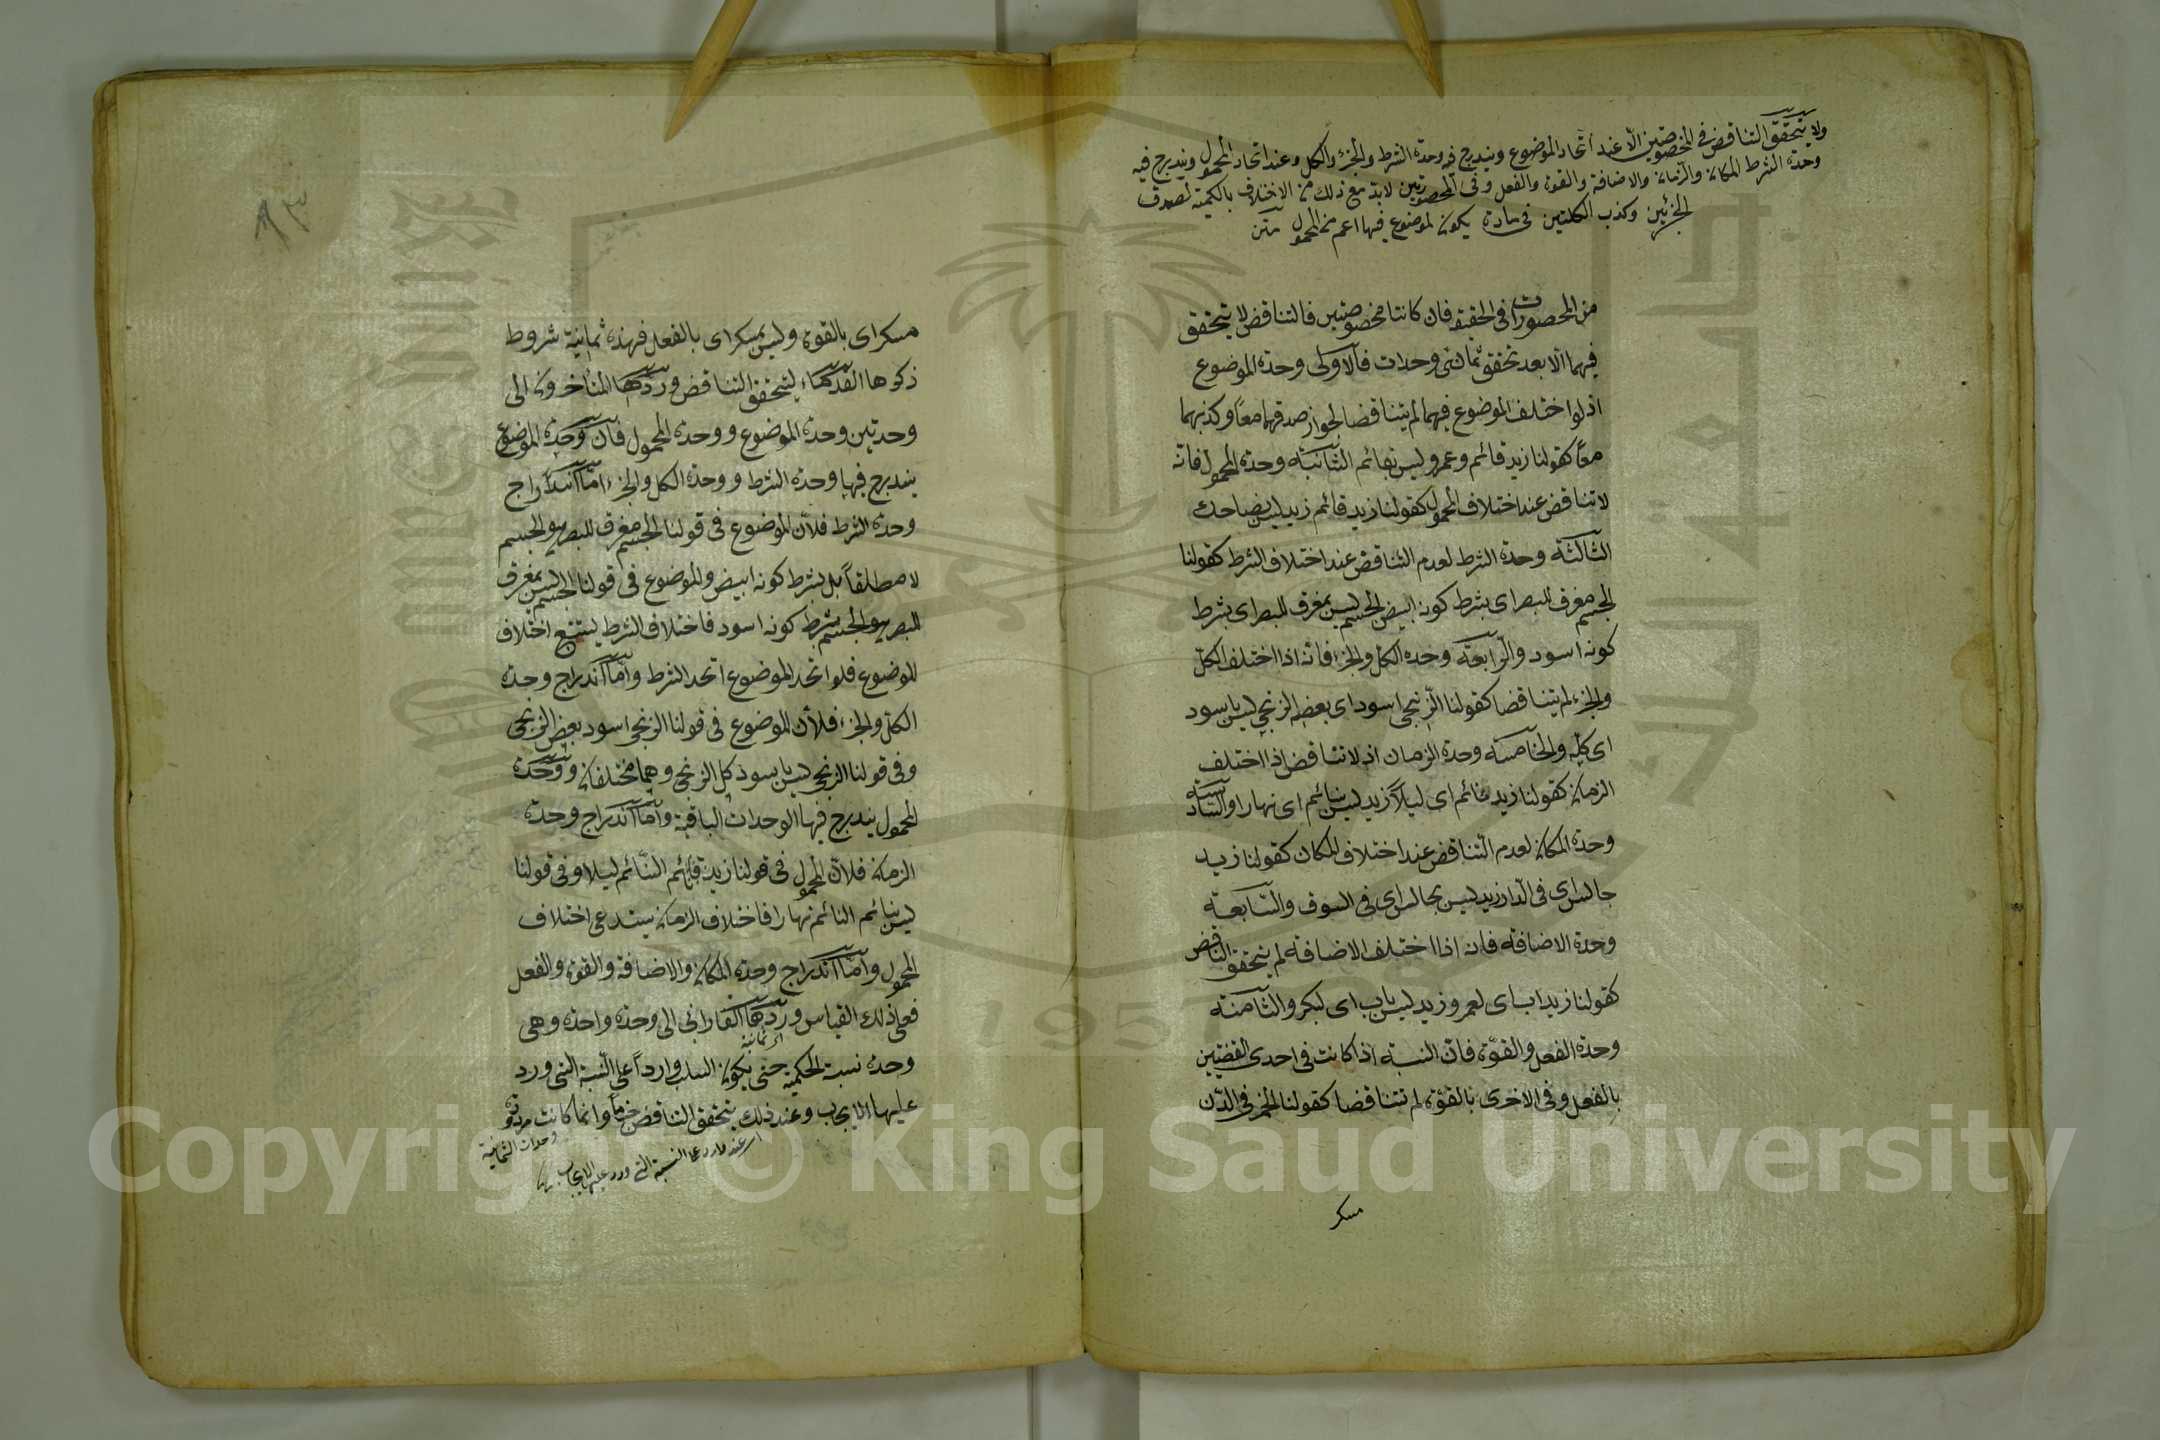 ولا يتحقق التناقض في المخصوصتين الا عند اتحاد الموضوع ويندرج فيه وحدة الشرط والجزء والكل وعند اتحاد المحمول ويندرج فيه
وحدة الشرط المكان والزمان والاضافة والقوة والفعل وفي المحصورتين لابد مع ذلك من الاختلاف بالكمية لصدق
الجزئيتين وكذب الكليتين في مادة يكون الموضوع فيها اعم من المحمول متن
من المحصورات في الحقيقة فان كانتا مخصوصتين فالتناقض لا يتحقق
فيهما الا بعد تحقق ثماني وحدات فالاولى وحدة الموضوع
اذ لو اختلف الموضوع فيهما لم يتناقضا لجواز صدقهما معًا وكذبهما
معًا كقولنا زيد قائم وعمرو ليس بقائم الثانية وحدة المحمول فانه
لا تناقض عند اختلاف المحمول كقولنا زيد قائم زيد ليس بضاحك
الثالثة وحدة الشرط لعدم التناقض عند اختلاف الشرط كقولنا
الجسم مفرق للبصر اي بشرط كونه ابيض الجسم ليس بمفرق للبصر اي بشرط
كونه اسود والرابعة وحدة الكل والجزء فانه اذا اختلف الكل
والجزء لم يتناقضا كقولنا الزنجي اسود اي بعضه الزنجي ليس باسود
اي كله والخامسة وحدة الزمان اذ لا تناقض اذا اختلف
الزمان كقولنا زيد نائم اي ليلاً زيد ليس بنائم اي نهارا والسادسة
وحدة المكان لعدم التناقض عند اختلاف المكان كقولنا زيد
جالس اي في الدار زيد ليس بجالس اي في السوق والسابعة
وحدة الاضافة فانه اذا اختلف الاضافة لم يتحقق التناقض
كقولنا زيد اب اي لعمرو زيد ليس باب اي لبكر والثامنة
وحدة الفعل والقوة فان النسبة اذا كانت في احدى القضيتين
بالفعل وفي الاخرى بالقوة لم تتناقضا كقولنا الخمر في الدن
مسكر
٨٣
مسكر اي بالقوة وليس بمسكر اي بالفعل فهذه ثمانية شروط
ذكرها القدماء ليتحقق التناقض وردها المتأخرون الى
وحدتين وحدة الموضوع ووحدة المحمول فان وحدة الموضوع
يندرج فيها وحدة الشرط ووحدة الكل والجزء اما اندراج
وحدة الشرط فلان الموضوع في قولنا الجسم مفرق للبصر هو الجسم
لا مطلقاً بل بشرط كونه ابيض والموضوع في قولنا الجسم ليس بمفرق
للبصر هو الجسم بشرط كونه اسود فاختلاف الشرط يستتبع اختلاف
الموضوع فلو اتحد الموضوع اتحد الشرط واما اندراج وحدة
الكل والجزء فلان الموضوع في قولنا الزنجي اسود بعض الزنجي
وفي قولنا الزنجي ليس باسود كل الزنجي وهما مختلفان ووحدة
المحمول يندرج فيها الوحدات الباقية واما اندراج وحدة
الزمان فلان المحمول في قولنا زيد نائم النائم ليلا وفي قولنا
ليس بنائم النائم نهارا فاختلاف الزمان يستدعي اختلاف
المحمول واما اندراج وحدة المكان والاضافة والقوة والفعل
فعلى ذلك القياس وردها الفارابي الى وحدة واحدة وهي
اي ثمانية
وحدة نسبة الحكمية حتى يكون السلب واردا على النسبة التي ورد
عليها الايجاب وعند ذلك يتحقق التناقض جزما وانما كانت مردودة
وحدات الثمانية
النسبة التي ورد عليها الايجاب
Copyright © King Saud University
1957